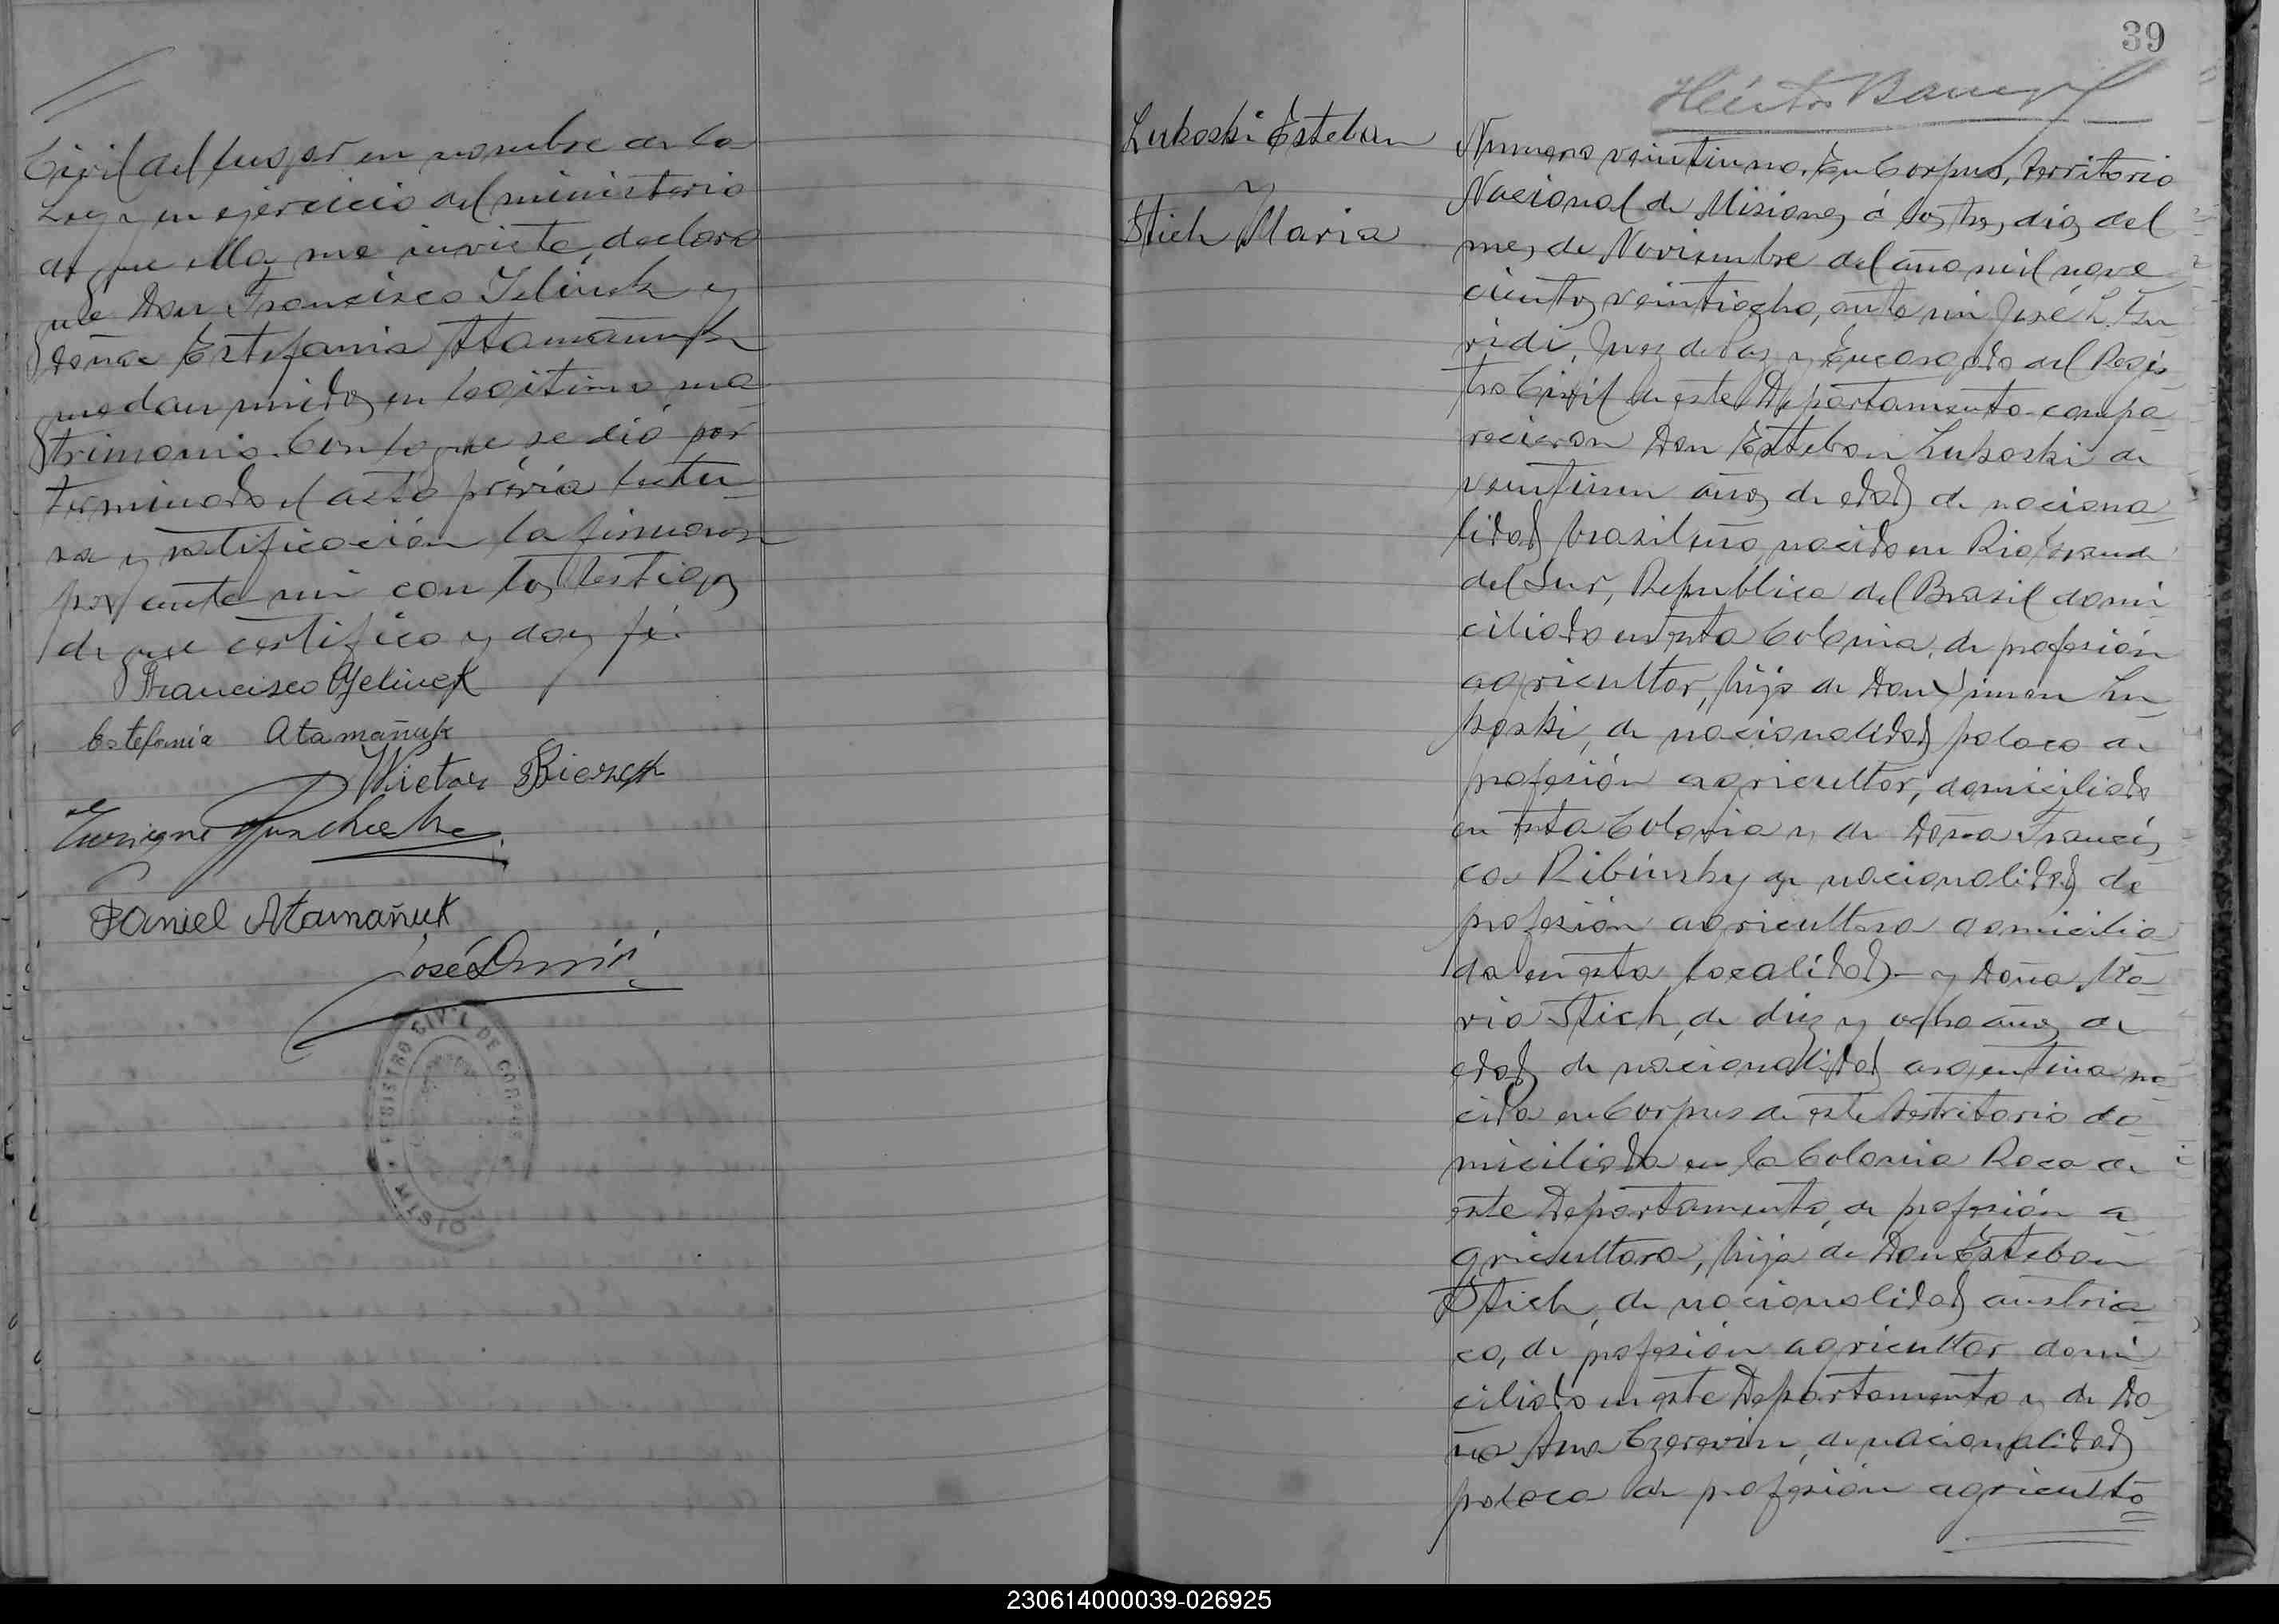 Civil del lugar en nombre de la
Ley y en ejercicio del ministerio
de que ella me inviste, declaro
que Don Francisco Jelinek y
Doña Estefania Atamañuk
quedan unidos en legitimo ma-
trimonio. Con lo que se dió por
terminado el acto prévia lectu-
ra y ratificación la firmaron
por ante mi con los testigos
de que certifico y doy fé.
Francisco Yelinek
Estefania Atamañuk
Wictor
Daniel Atamañuk
José
REGISTRO CIVIL DE CORPUS
MISIO
39
Héctor
Lukoski Esteban
y
Stich Maria
Numero veintiuno. En Corpus, territorio
Nacional de Misiones á los tres dias del
mes de Noviembre del ano mil nove
cientos veintiocho, ante mi José L.
ridi, Juez de Paz y Encargado del Regis
tro Civil de este Departamento compa-
recieron Don Esteban Lukoski de
veintiun años de edad de naciona-
lidad brasileño nacido en Rio Grande
del Sur, Republica del Brasil domi
ciliado en esta Colonia, de profesión
agricultor, hijo de Don Simon Lu-
koski, de nacionalidad polaco de
profesión agricultor, domiciliado
en esta Colonia y de Doña Francis
ca Ribinsky de nacionalidad de
profesión agricultora domicilia
da en esta localidad- y Doña Ma-
ria Stich, de diez y ocho años de
edad de nacionalidad argentina na-
cida en Corpus de este territorio do-
miciliada en la Colonia Roca de
este Departamento, de profesión a-
gricultora, hija de Don Esteban
Stich, de nacionalidad austria-
co, de profesión agricultor domi
ciliado en este Departamento y de Do-
ña Ana Czerevin, de nacionalidad
polaca de profesión agriculto
230614000039-026925